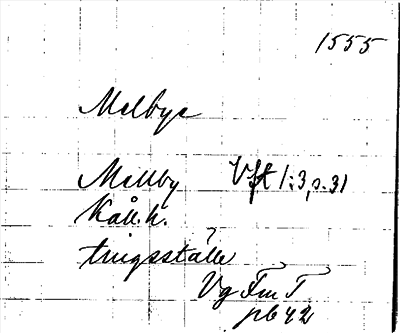 1555
Melbye
Mellby Vft 1:3, p. 31
Kåll. h.
tingsställe
Vg Fm T
nb 42